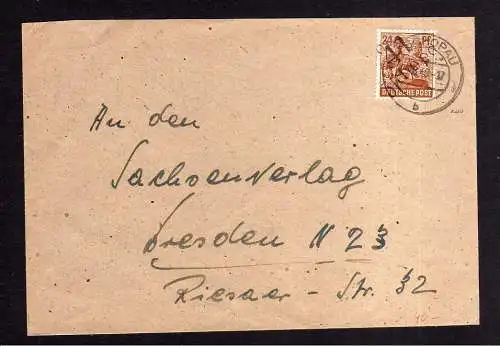 24
OPAU
DEUTSCHE POST
b
An den
Sachsenverlag
Dresden N 23
Riesaer - Str. 32